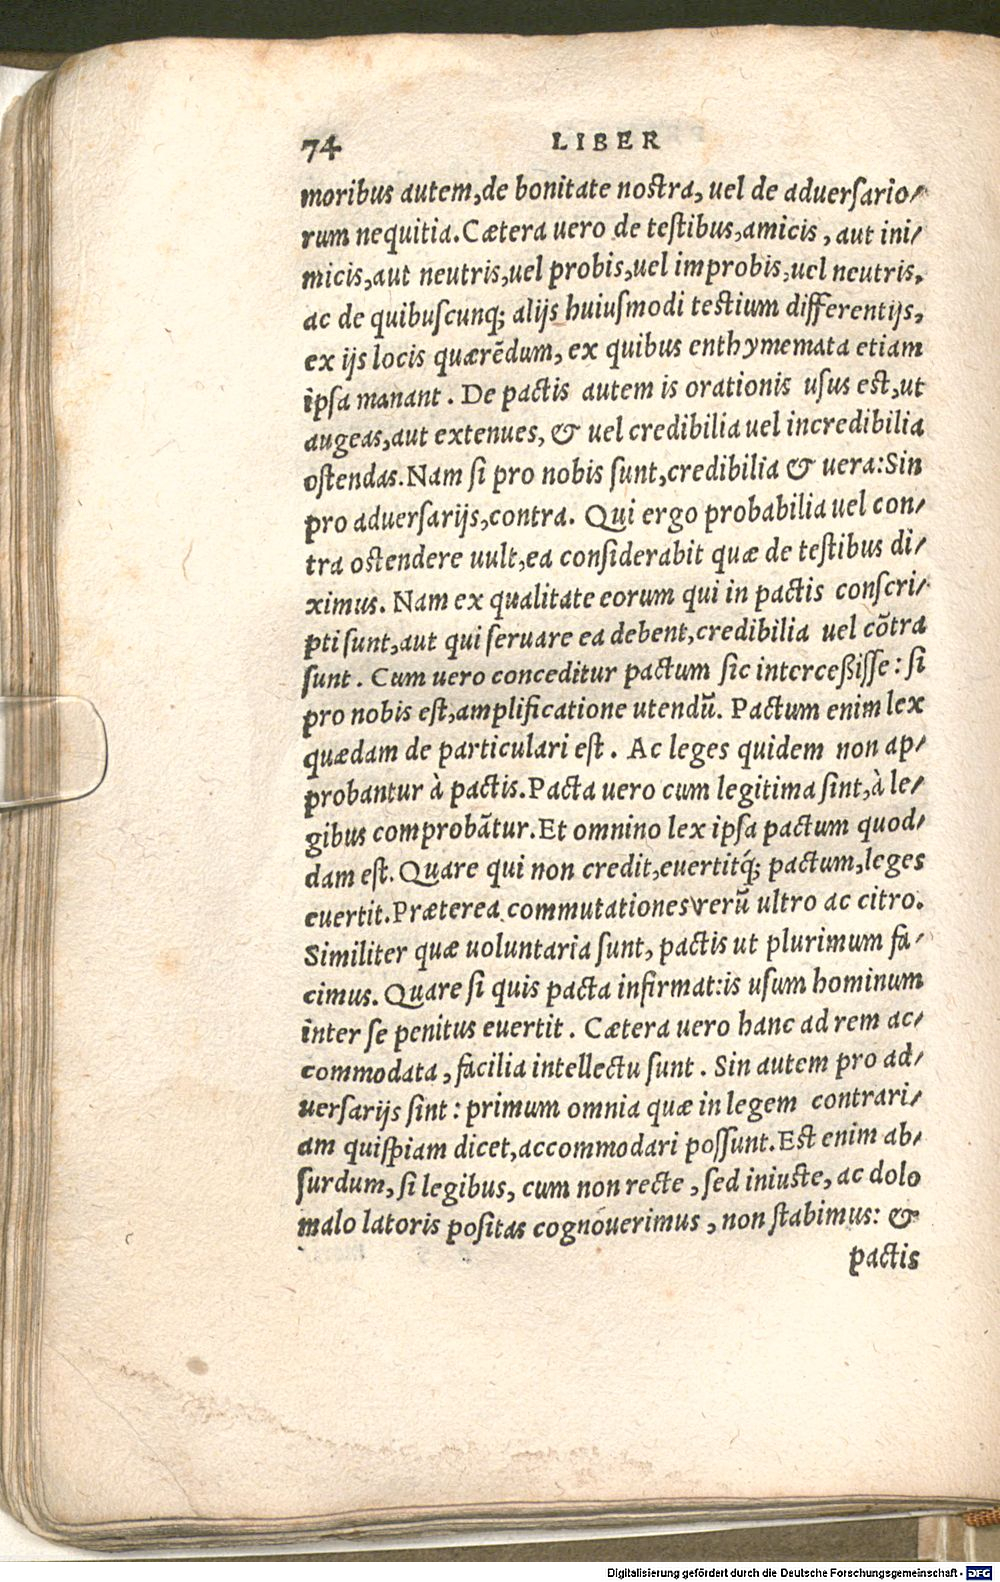 74 LIBER
moribus autem,de bonitate nostra, uel de aduersario/
rum nequitia.Cætera uero de testibus,amicis, aut ini/
micis,aut neutris,uel probis,uel improbis,uel neutris,
ac de quibuscunq; alijs huiusmodi testium differentijs,
ex ijs locis quærēdum, ex quibus enthymemata etiam
ipsa manant. De pactis autem is orationis usus est,ut
augeas,aut extenues, & uel credibilia uel incredibilia
ostendas.Nam si pro nobis sunt,credibilia & uera:Sin
pro aduersarijs,contra. Qui ergo probabilia uel con/
tra ostendere uult,ea considerabit quæ de testibus di/
ximus. Nam ex qualitate eorum qui in pactis conscri/
pti sunt,aut qui seruare ea debent,credibilia uel cōtra
sunt. Cum uero conceditur pactum sic interceßisse: si
pro nobis est,amplificatione utendū. Pactum enim lex
quædam de particulari est. Ac leges quidem non ap/
probantur à pactis.Pacta uero cum legitima sint,à le/
gibus comprobātur.Et omnino lex ipsa pactum quod/
dam est. Quare qui non credit,euertitq́; pactum,leges
euertit.Præterea commutationes rerū ultro ac citro.
Similiter quæ uoluntaria sunt, pactis ut plurimum fa/
cimus. Quare si quis pacta infirmat:is usum hominum
inter se penitus euertit. Cætera uero hanc ad rem ac/
commodata, facilia intellectu sunt. Sin autem pro ad/
uersarijs sint: primum omnia quæ in legem contrari/
am quispiam dicet,accommodari possunt.Est enim ab/
surdum, si legibus, cum non recte, sed iniuste, ac dolo
malo latoris positas cognouerimus, non stabimus: &
pactis
Digitalisierung gefördert durch die Deutsche Forschungsgemeinschaft - DFG